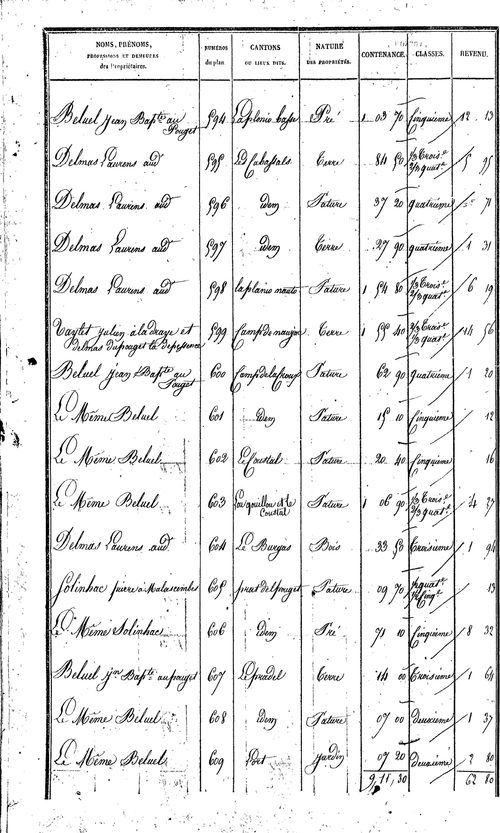 NOMS, PRÉNOMS, PROFESSION ET DEMEURES des Propriétaires. NUMÉROS du plan CANTONS OU LIEUX DITS. NATURE DES PROPRIÉTÉS. CONTENANCE. CLASSES. REVENU.
Beluel Jean Bapte au Pouget 594 Laplanio basse Pré 1 03 70 Cinquieme 12 13
Delmas Laurens aud 595 Les Cabassals Terre 84 50 1/3 Trois.e 2/3 quat.e 5 95
Delmas Laurens aud 596 idem Pature 37 20 quatrieme 71
Delmas Laurens aud 597 idem Terre 27 90 quatrieme 1 31
Delmas Laurens aud 598 laplanio naute Pature 1 54 80 1/3 Trois.e 2/3 quat.e 6 19
julien à la draye et delmas dupouget 599 Camp de Terre 1 55 40 2/3 Trois.e 1/3 quat.e 14 56
Beluel Jean Bapte au Pouget 600 Camp de la Pature 62 90 quatrieme 1 20
Le Même Beluel 601 idem Pature 15 10 Cinquieme 12
Le Même Beluel 602 Le Coustal Pature 20 40 Cinquieme 16
Le Même Beluel 603 et le Coustal Pature 1 06 90 1/3 Trois.e 2/3 quat.e 4 27
Delmas Laurens aud 604 Le Burgas Bois 33 50 Troisieme 1 94
Solinhac pierre à Malascombes 605 prat del pouget Pature 09 70 1/2 quat.e 1/2 cinq.e 13
Le Même Solinhac 606 idem Pré 71 10 Cinquieme 8 32
Beluel Jean Bapte au pouget 607 Le pradel Terre 14 00 Troisieme 1 64
Le Même Beluel 608 idem Pature 07 00 deuxieme 1 37
Le Même Beluel 609 L'ort Jardin 07 20 Deuxieme 2 80
9, 11, 30 62 80